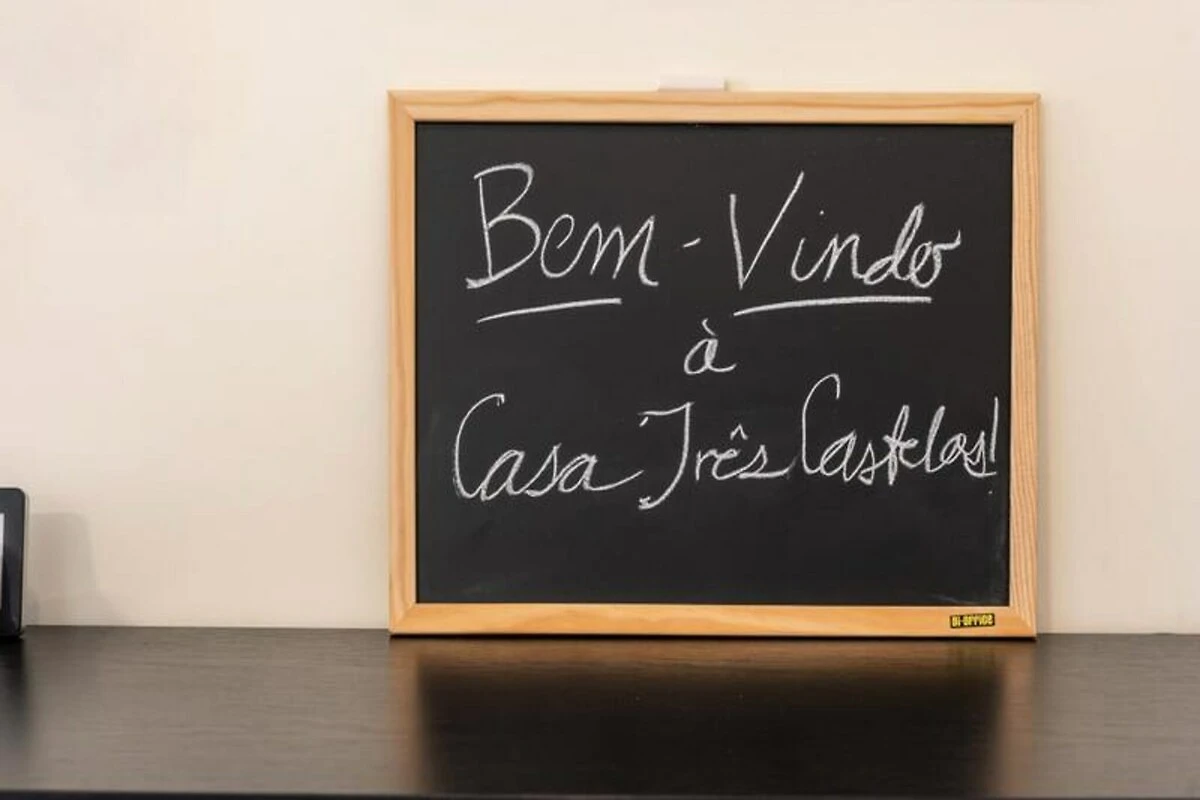 Bem-Vindo
à
Casa Três Castelos!
Bi-OFFiCE